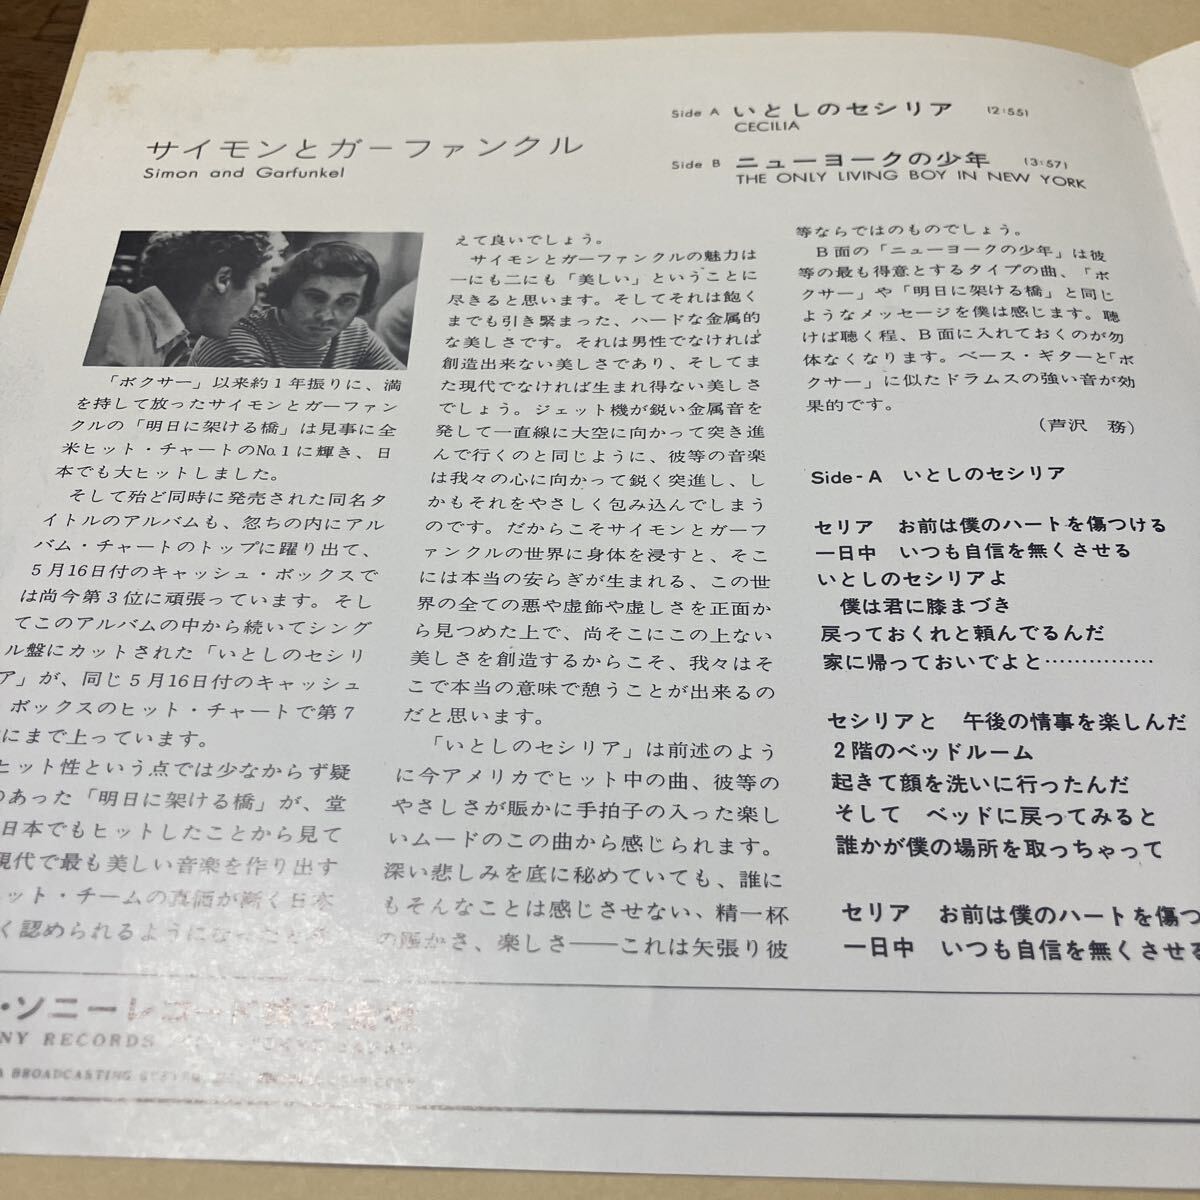 サイモンとガーファンクル
Simon and Garfunkel
Side A いとしのセシリア (2:55)
CECILIA
Side B ニューヨークの少年 (3:57)
THE ONLY LIVING BOY IN NEW YORK
「ボクサー」以来約1年振りに、満
を持して放ったサイモンとガーファン
クルの「明日に架ける橋」は見事に全
米ヒット・チャートのNo.1に輝き、日
本でも大ヒットしました。
そして殆ど同時に発売された同名タ
イトルのアルバムも、忽ちの内にアル
バム・チャートのトップに躍り出て、
5月16日付のキャッシュ・ボックスで
は尚今第3位に頑張っています。そし
てこのアルバムの中から続いてシング
ル盤にカットされた「いとしのセシリ
ア」が、同じ5月16日付のキャッシュ
・ボックスのヒット・チャートで第7
にまで上っています。
ヒット性という点では少なからず疑
のあった「明日に架ける橋」が、堂
日本でもヒットしたことから見て
現代で最も美しい音楽を作り出す
ット・チームの真価が漸く日本
く認められるように
えて良いでしょう。
サイモンとガーファンクルの魅力は
一にも二にも「美しい」ということに
尽きると思います。そしてそれは飽く
までも引き緊まった、ハードな金属的
な美しさです。それは男性でなければ
創造出来ない美しさであり、そしてま
た現代でなければ生まれ得ない美しさ
でしょう。ジェット機が鋭い金属音を
発して一直線に大空に向かって突き進
んで行くのと同じように、彼等の音楽
は我々の心に向かって鋭く突進し、し
かもそれをやさしく包み込んでしまう
のです。だからこそサイモンとガーフ
ァンクルの世界に身体を浸すと、そこ
には本当の安らぎが生まれる、この世
界の全ての悪や虚飾や虚しさを正面か
ら見つめた上で、尚そこにこの上ない
美しさを創造するからこそ、我々はそ
こで本当の意味で憩うことが出来るの
だと思います。
「いとしのセシリア」は前述のよう
に今アメリカでヒット中の曲、彼等の
やさしさが賑かに手拍子の入った楽し
いムードのこの曲から感じられます。
深い悲しみを底に秘めていても、誰に
もそんなことは感じさせない、精一杯
の賑かさ、楽しさ——これは矢張り彼
等ならではのものでしょう。
B面の「ニューヨークの少年」は彼
等の最も得意とするタイプの曲、「ボ
クサー」や「明日に架ける橋」と同じ
ようなメッセージを僕は感じます。聴
けば聴く程、B面に入れておくのが勿
体なくなります。ベース・ギターと「ボ
クサー」に似たドラムスの強い音が効
果的です。
(芦沢 務)
Side-A いとしのセシリア
セリア お前は僕のハートを傷つける
一日中 いつも自信を無くさせる
いとしのセシリアよ
僕は君に膝まづき
戻っておくれと頼んでるんだ
家に帰っておいでよと……………
セシリアと 午後の情事を楽しんだ
2階のベッドルーム
起きて顔を洗いに行ったんだ
そして ベッドに戻ってみると
誰かが僕の場所を取っちゃって
セリア お前は僕のハートを傷つ
一日中 いつも自信を無くさせ
・ソニーレコード株式会社
NY RECORDS
BROADCASTING